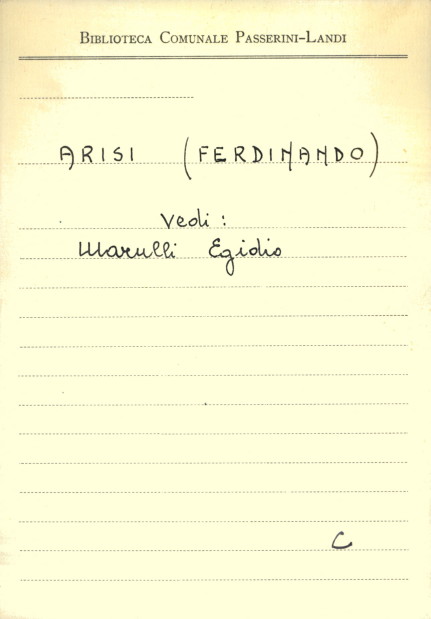 BIBLIOTECA COMUNALE PASSERINI-LANDI
ARISI (FERDINANDO)
Vedi:
Marulli Egidio
C